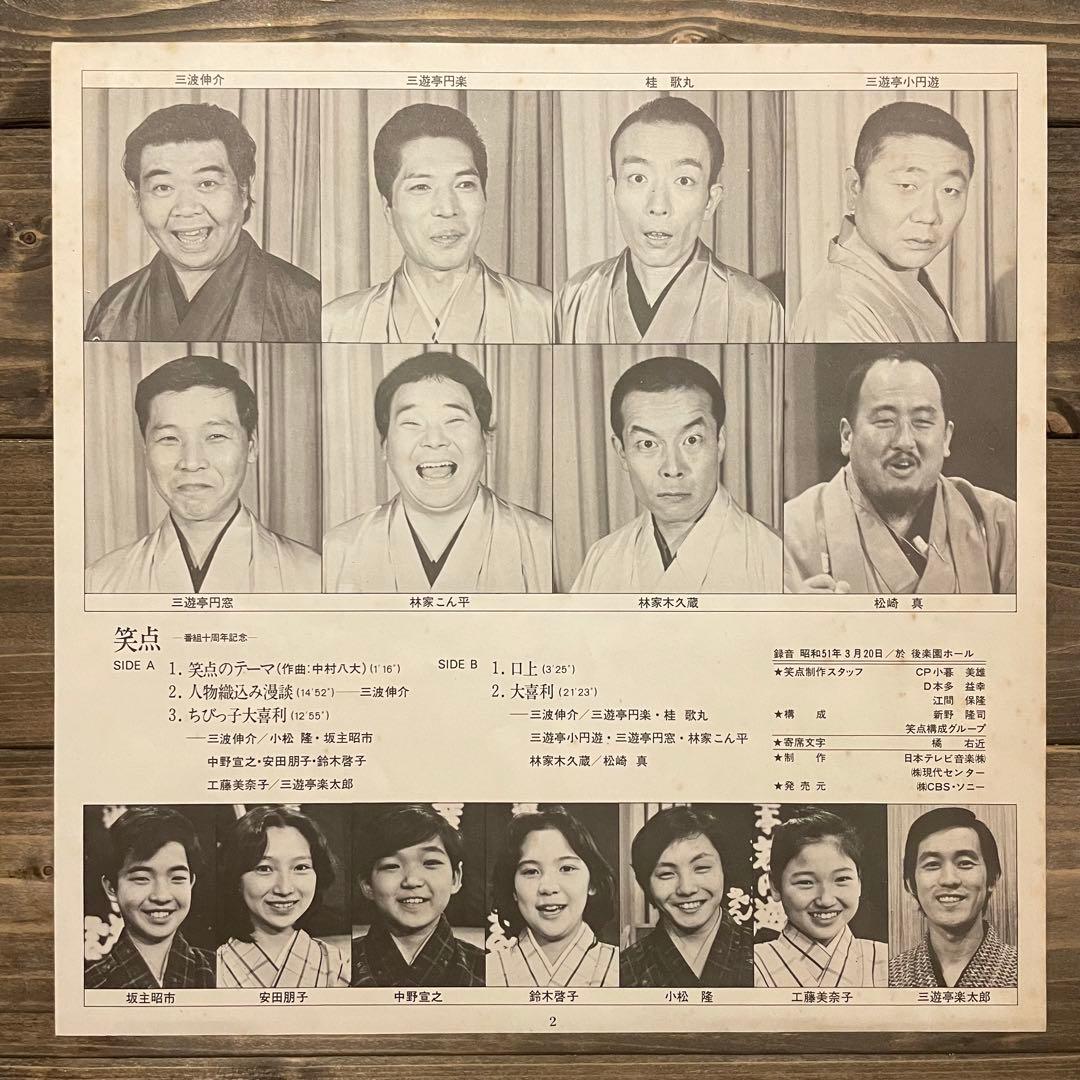 三波伸介 三遊亭円楽 桂 歌丸 三遊亭小円遊
三遊亭円窓 林家こん平 林家木久蔵 松崎 真
笑点 ―番組十周年記念―
SIDE A
1. 笑点のテーマ(作曲:中村八大)(1'16")
2. 人物織込み漫談(14'52")――三波伸介
3. ちびっ子大喜利(12'55")
――三波伸介/小松 隆・坂主昭市
中野宣之・安田朋子・鈴木啓子
工藤美奈子/三遊亭楽太郎
SIDE B
1. 口上(3'25")
2. 大喜利(21'23")
――三波伸介/三遊亭円楽・桂 歌丸
三遊亭小円遊・三遊亭円窓・林家こん平
林家木久蔵/松崎 真
録音 昭和51年3月20日/於 後楽園ホール
★笑点制作スタッフ CP小暮 美雄
D本多 益幸
江間 保隆
★構成 新野 隆司
笑点構成グループ
★寄席文字 橘 右近
★制作 日本テレビ音楽㈱
㈱現代センター
★発売元 ㈱CBS・ソニー
坂主昭市 安田朋子 中野宣之 鈴木啓子 小松 隆 工藤美奈子 三遊亭楽太郎
2